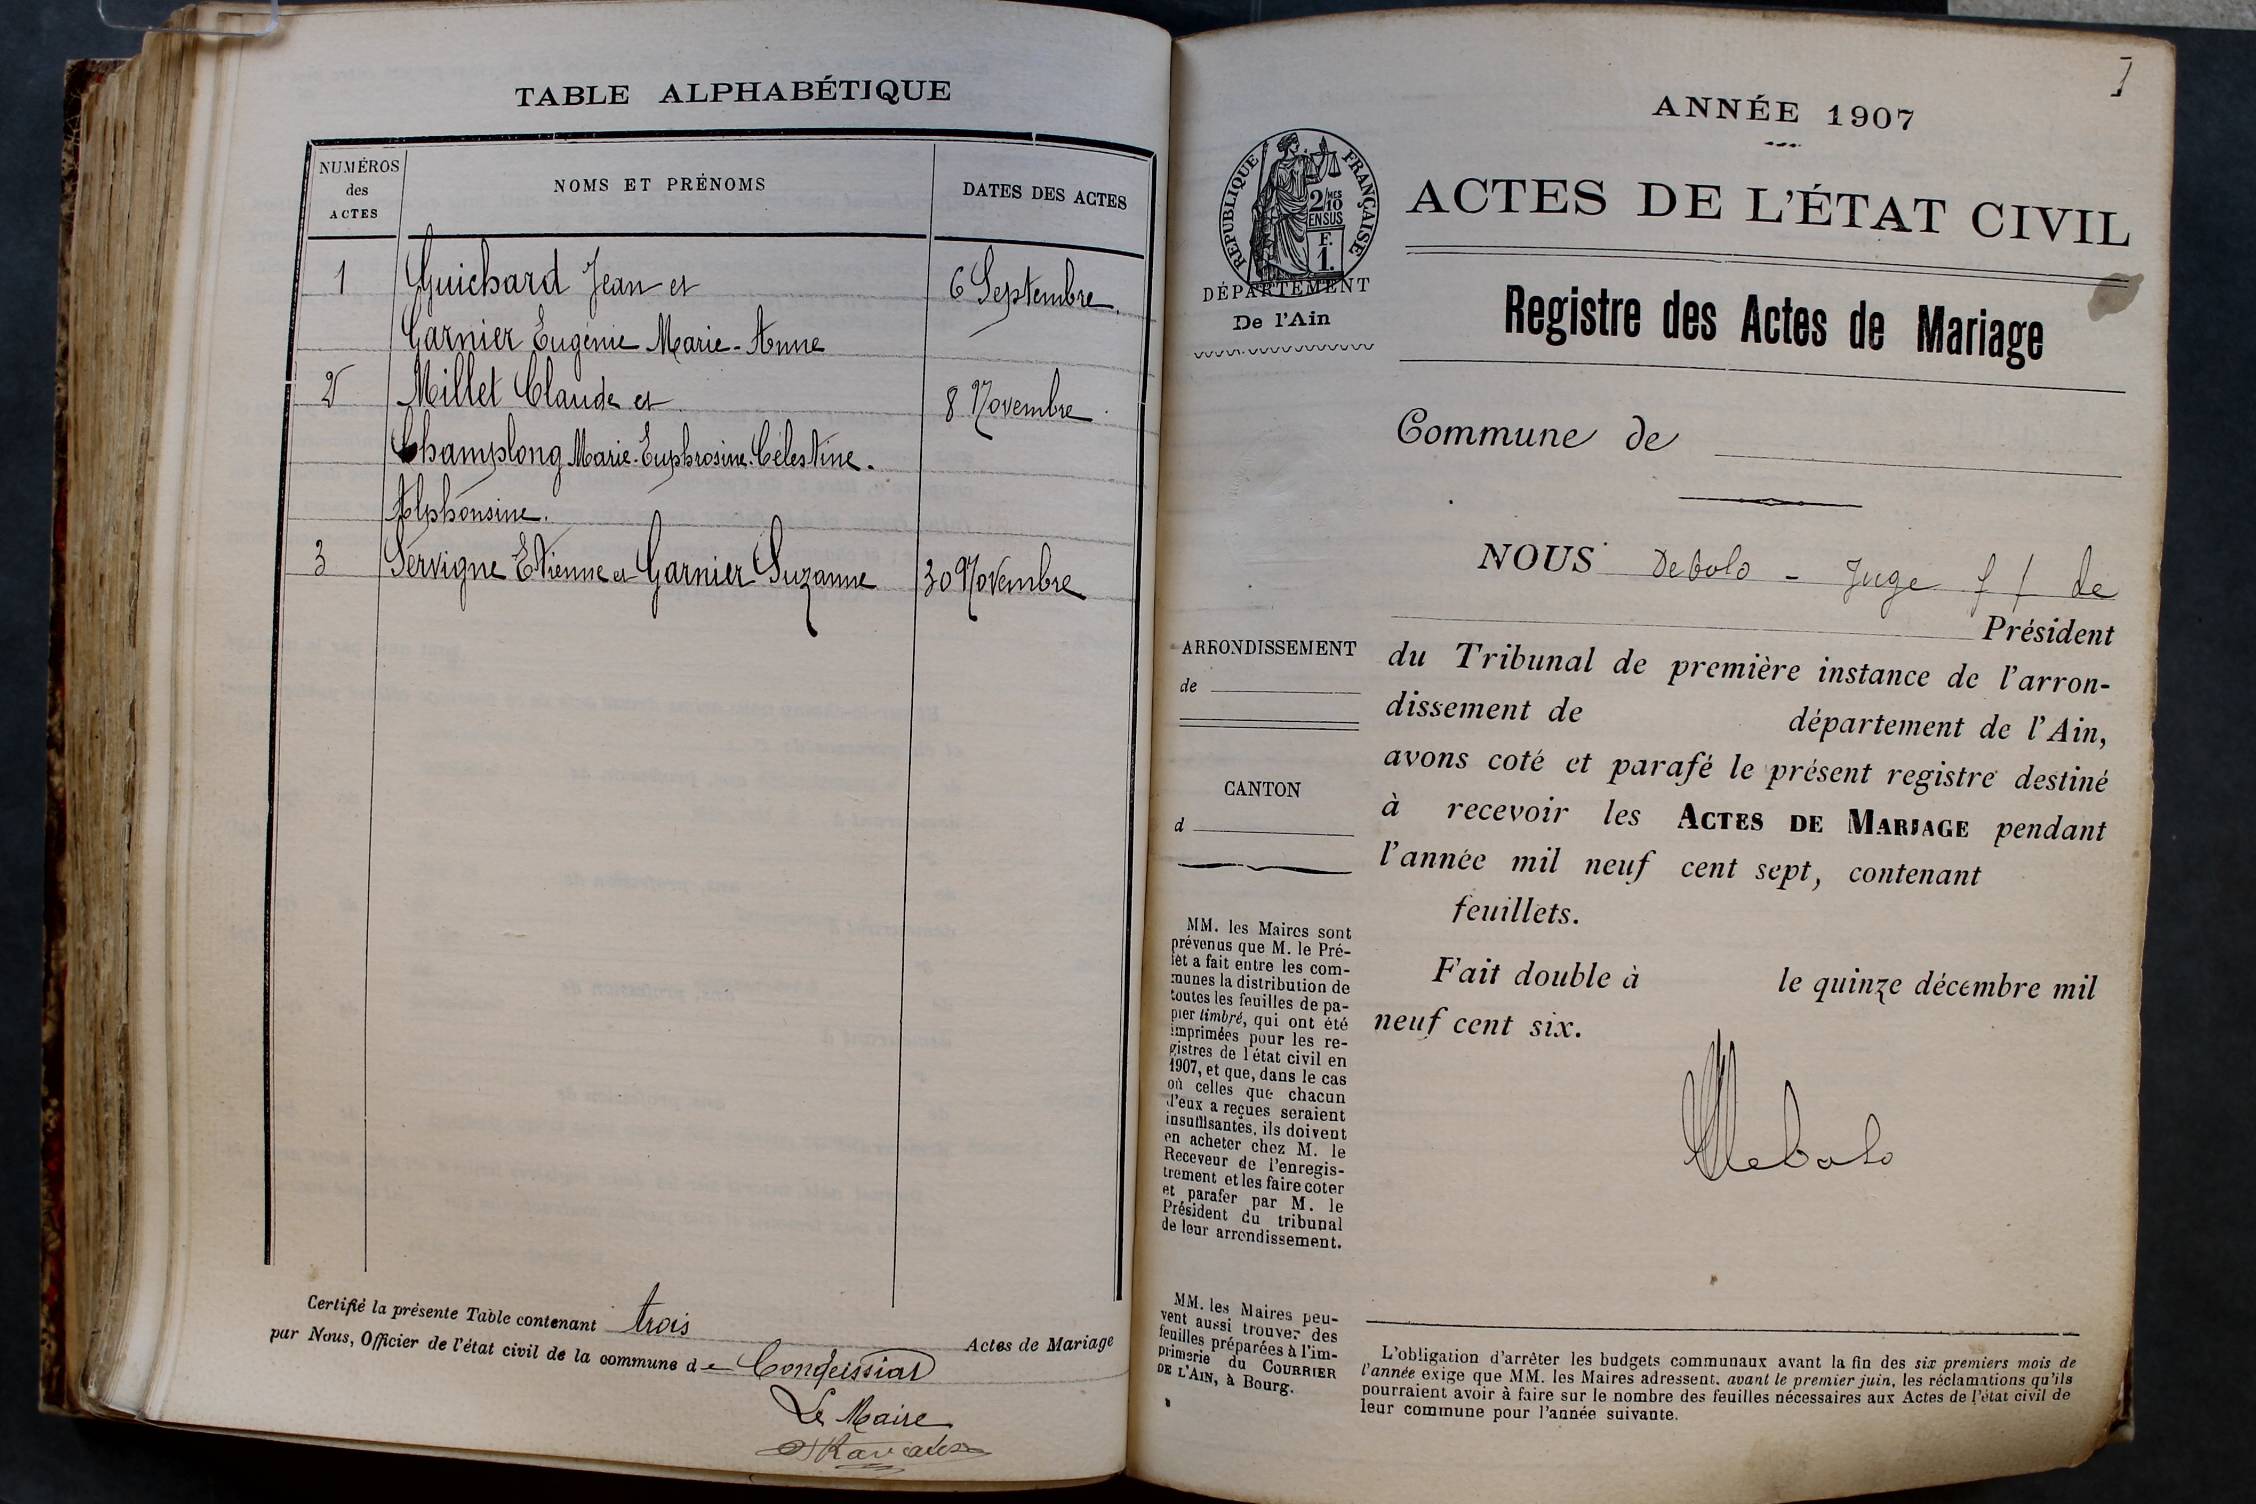 TABLE ALPHABÉTIQUE
NUMÉROS
des
ACTES
NOMS ET PRÉNOMS
DATES DES ACTES
1 Guichard Jean et 6 Septembre
Garnier Eugénie Marie-Anne
2 Millet Claude et 8 Novembre
Champlong Marie-Euphrosine-Célestine.
Alphonsine.
3 Servigne Etienne et Garnier Suzanne 30 Novembre
Certifié la présente Table contenant trois Actes de Mariage
par Nous, Officier de l'état civil de la commune de Condeissiat
Le Maire
1
ANNÉE 1907
RÉPUBLIQUE FRANÇAISE
2/10 MES
EN SUS
F.
1.
DÉPARTEMENT
De l'Ain
ACTES DE L'ÉTAT CIVIL
Registre des Actes de Mariage
Commune de
NOUS Debolo - Juge f f de
Président
du Tribunal de première instance de l'arron-
dissement de département de l'Ain,
avons coté et parafé le présent registre destiné
à recevoir les ACTES DE MARIAGE pendant
l'année mil neuf cent sept, contenant
feuillets.
Fait double à le quinze décembre mil
neuf cent six.
Debolo
ARRONDISSEMENT
de
CANTON
d
MM. les Maires sont
prévenus que M. le Pré-
fet a fait entre les com-
munes la distribution de
toutes les feuilles de pa-
pier timbré, qui ont été
imprimées pour les re-
gistres de l'état civil en
1907, et que, dans le cas
où celles que chacun
d'eux a reçues seraient
insuffisantes, ils doivent
en acheter chez M. le
Receveur de l'enregis-
trement et les faire coter
et parafer par M. le
Président du tribunal
de leur arrondissement.
MM. les Maires peu-
vent aussi trouver des
feuilles préparées à l'im-
primerie du COURRIER
DE L'AIN, à Bourg.
L'obligation d'arrêter les budgets communaux avant la fin des six premiers mois de
l'année exige que MM. les Maires adressent, avant le premier juin, les réclamations qu'ils
pourraient avoir à faire sur le nombre des feuilles nécessaires aux Actes de l'état civil de
leur commune pour l'année suivante.